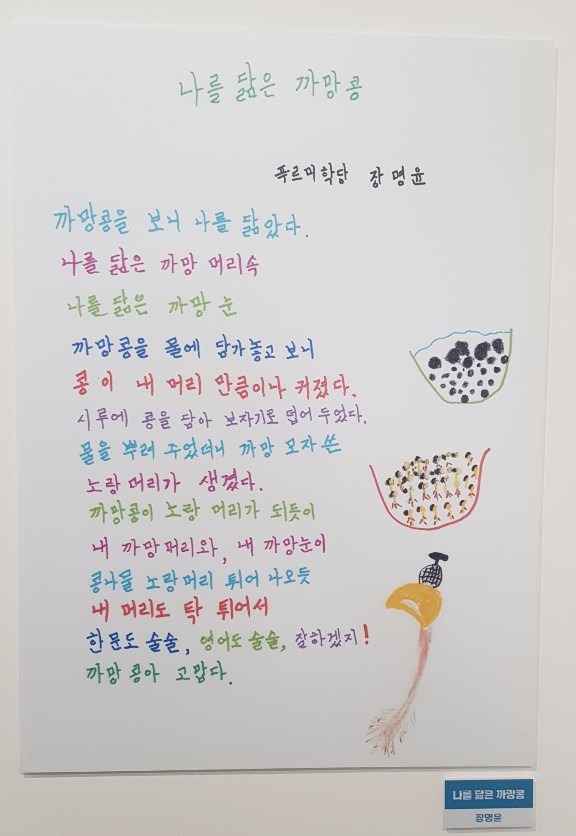 나를 닮은 까망콩
푸르미학당 장명윤
까망콩을 보니 나를 닮았다.
나를 닮은 까망 머리속
나를 닮은 까망 눈
까망콩을 물에 담가놓고 보니
콩이 내 머리 만큼이나 커졌다.
시루에 콩을 담아 보자기로 덮어 두었다.
물을 뿌려 주었더니 까망 모자 쓴
노랑머리가 생겼다.
까망콩이 노랑 머리가 되듯이
내 까망머리와, 내 까망눈이
콩나물 노랑머리 튀어 나오듯
내 머리도 탁 튀어서
한문도 술술, 영어도 술술, 잘하겠지!
까망 콩아 고맙다.
나를 닮은 까망콩
장명윤